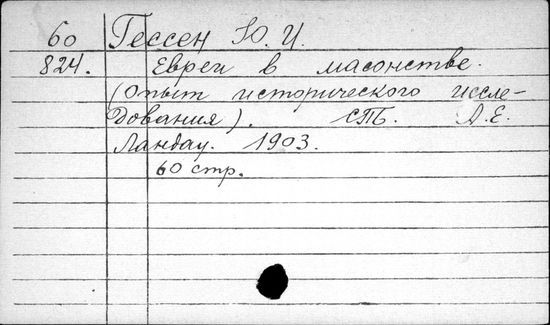 60 Гессен Ю. И.
824. Евреи в масонстве.
(Опыт исторического иссле-
дования). СТБ. А.Е.
Ландау. 1903.
60 стр.